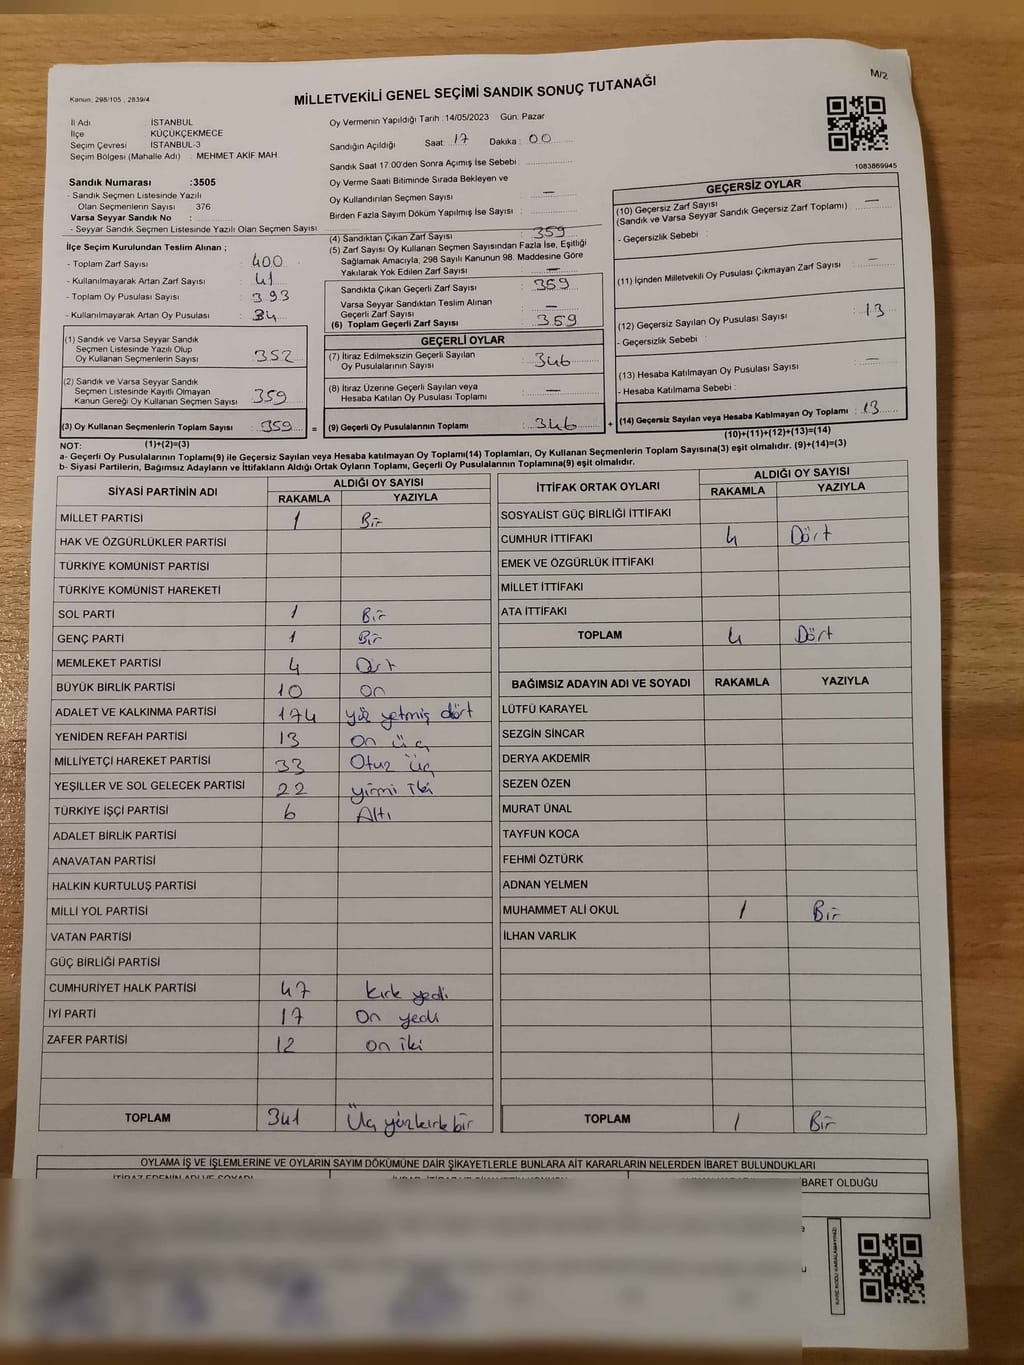 M/2
Kanun: 298/105 , 2839/4
MİLLETVEKİLİ GENEL SEÇİMİ SANDIK SONUÇ TUTANAĞI
İl Adı İSTANBUL
İlçe KÜÇÜKÇEKMECE
Seçim Çevresi İSTANBUL-3
Seçim Bölgesi (Mahalle Adı) : MEHMET AKİF MAH
Sandık Numarası :3505
- Sandık Seçmen Listesinde Yazılı
Olan Seçmenlerin Sayısı 376
Varsa Seyyar Sandık No :
- Seyyar Sandık Seçmen Listesinde Yazılı Olan Seçmen Sayısı
Oy Vermenin Yapıldığı Tarih : 14/05/2023 Gün: Pazar
Sandığın Açıldığı Saat: 17 Dakika : 00
Sandık Saat 17:00'den Sonra Açımış İse Sebebi :
Oy Verme Saati Bitiminde Sırada Bekleyen ve
Oy Kullandırılan Seçmen Sayısı : —
Birden Fazla Sayım Döküm Yapılmış İse Sayısı :
1083869945
İlçe Seçim Kurulundan Teslim Alınan ;
- Toplam Zarf Sayısı : 400
- Kullanılmayarak Artan Zarf Sayısı : 41
- Toplam Oy Pusulası Sayısı : 393
- Kullanılmayarak Artan Oy Pusulası : 34
(1) Sandık ve Varsa Seyyar Sandık
Seçmen Listesinde Yazılı Olup
Oy Kullanan Seçmenlerin Sayısı : 352
(2) Sandık ve Varsa Seyyar Sandık
Seçmen Listesinde Kayıtlı Olmayan
Kanun Gereği Oy Kullanan Seçmen Sayısı : 359
(3) Oy Kullanan Seçmenlerin Toplam Sayısı : 359 =
(1)+(2)=(3)
(4) Sandıktan Çıkan Zarf Sayısı : 359
(5) Zarf Sayısı Oy Kullanan Seçmen Sayısından Fazla İse, Eşitliği
Sağlamak Amacıyla, 298 Sayılı Kanunun 98. Maddesine Göre
Yakılarak Yok Edilen Zarf Sayısı : —
Sandıkta Çıkan Geçerli Zarf Sayısı : 359
Varsa Seyyar Sandıktan Teslim Alınan
Geçerli Zarf Sayısı : —
(6) Toplam Geçerli Zarf Sayısı : 359
GEÇERLİ OYLAR
(7) İtiraz Edilmeksizin Geçerli Sayılan
Oy Pusulalarının Sayısı : 346
(8) İtiraz Üzerine Geçerli Sayılan veya
Hesaba Katılan Oy Pusulası Toplamı : —
(9) Geçerli Oy Pusulalarının Toplamı : 346 +
GEÇERSİZ OYLAR
(10) Geçersiz Zarf Sayısı : —
(Sandık ve Varsa Seyyar Sandık Geçersiz Zarf Toplamı)
- Geçersizlik Sebebi :
(11) İçinden Milletvekili Oy Pusulası Çıkmayan Zarf Sayısı : —
(12) Geçersiz Sayılan Oy Pusulası Sayısı : 13
- Geçersizlik Sebebi :
(13) Hesaba Katılmayan Oy Pusulası Sayısı : —
- Hesaba Katılmama Sebebi :
(14) Geçersiz Sayılan veya Hesaba Katılmayan Oy Toplamı : 13
(10)+(11)+(12)+(13)=(14)
NOT:
a- Geçerli Oy Pusulalarının Toplamı(9) ile Geçersiz Sayılan veya Hesaba katılmayan Oy Toplamı(14) Toplamları, Oy Kullanan Seçmenlerin Toplam Sayısına(3) eşit olmalıdır. (9)+(14)=(3)
b- Siyasi Partilerin, Bağımsız Adayların ve İttifakların Aldığı Ortak Oyların Toplamı, Geçerli Oy Pusulalarının Toplamına(9) eşit olmalıdır.
SİYASİ PARTİNİN ADI ALDIĞI OY SAYISI
RAKAMLA YAZIYLA
MİLLET PARTİSİ 1 Bir
HAK VE ÖZGÜRLÜKLER PARTİSİ
TÜRKİYE KOMÜNİST PARTİSİ
TÜRKİYE KOMÜNİST HAREKETİ
SOL PARTİ 1 Bir
GENÇ PARTİ 1 Bir
MEMLEKET PARTİSİ 4 Dört
BÜYÜK BİRLİK PARTİSİ 10 On
ADALET VE KALKINMA PARTİSİ 174 yüz yetmiş dört
YENİDEN REFAH PARTİSİ 13 On üç
MİLLİYETÇİ HAREKET PARTİSİ 33 Otuz üç
YEŞİLLER VE SOL GELECEK PARTİSİ 22 yirmi iki
TÜRKİYE İŞÇİ PARTİSİ 6 Altı
ADALET BİRLİK PARTİSİ
ANAVATAN PARTİSİ
HALKIN KURTULUŞ PARTİSİ
MİLLİ YOL PARTİSİ
VATAN PARTİSİ
GÜÇ BİRLİĞİ PARTİSİ
CUMHURİYET HALK PARTİSİ 47 kırk yedi
İYİ PARTİ 17 On yedi
ZAFER PARTİSİ 12 on iki
TOPLAM 341 Üç yüz kırk bir
İTTİFAK ORTAK OYLARI ALDIĞI OY SAYISI
RAKAMLA YAZIYLA
SOSYALİST GÜÇ BİRLİĞİ İTTİFAKI
CUMHUR İTTİFAKI 4 Dört
EMEK VE ÖZGÜRLÜK İTTİFAKI
MİLLET İTTİFAKI
ATA İTTİFAKI
TOPLAM 4 Dört
BAĞIMSIZ ADAYIN ADI VE SOYADI RAKAMLA YAZIYLA
LÜTFÜ KARAYEL
SEZGİN SİNCAR
DERYA AKDEMİR
SEZEN ÖZEN
MURAT ÜNAL
TAYFUN KOCA
FEHMİ ÖZTÜRK
ADNAN YELMEN
MUHAMMET ALİ OKUL 1 Bir
İLHAN VARLIK
TOPLAM 1 Bir
OYLAMA İŞ VE İŞLEMLERİNE VE OYLARIN SAYIM DÖKÜMÜNE DAİR ŞİKAYETLERLE BUNLARA AİT KARARLARIN NELERDEN İBARET BULUNDUKLARI
İTİRAZ EDENİN ADI VE SOYADI
BARET OLDUĞU
KARE KODU KARALAMAYINIZ!